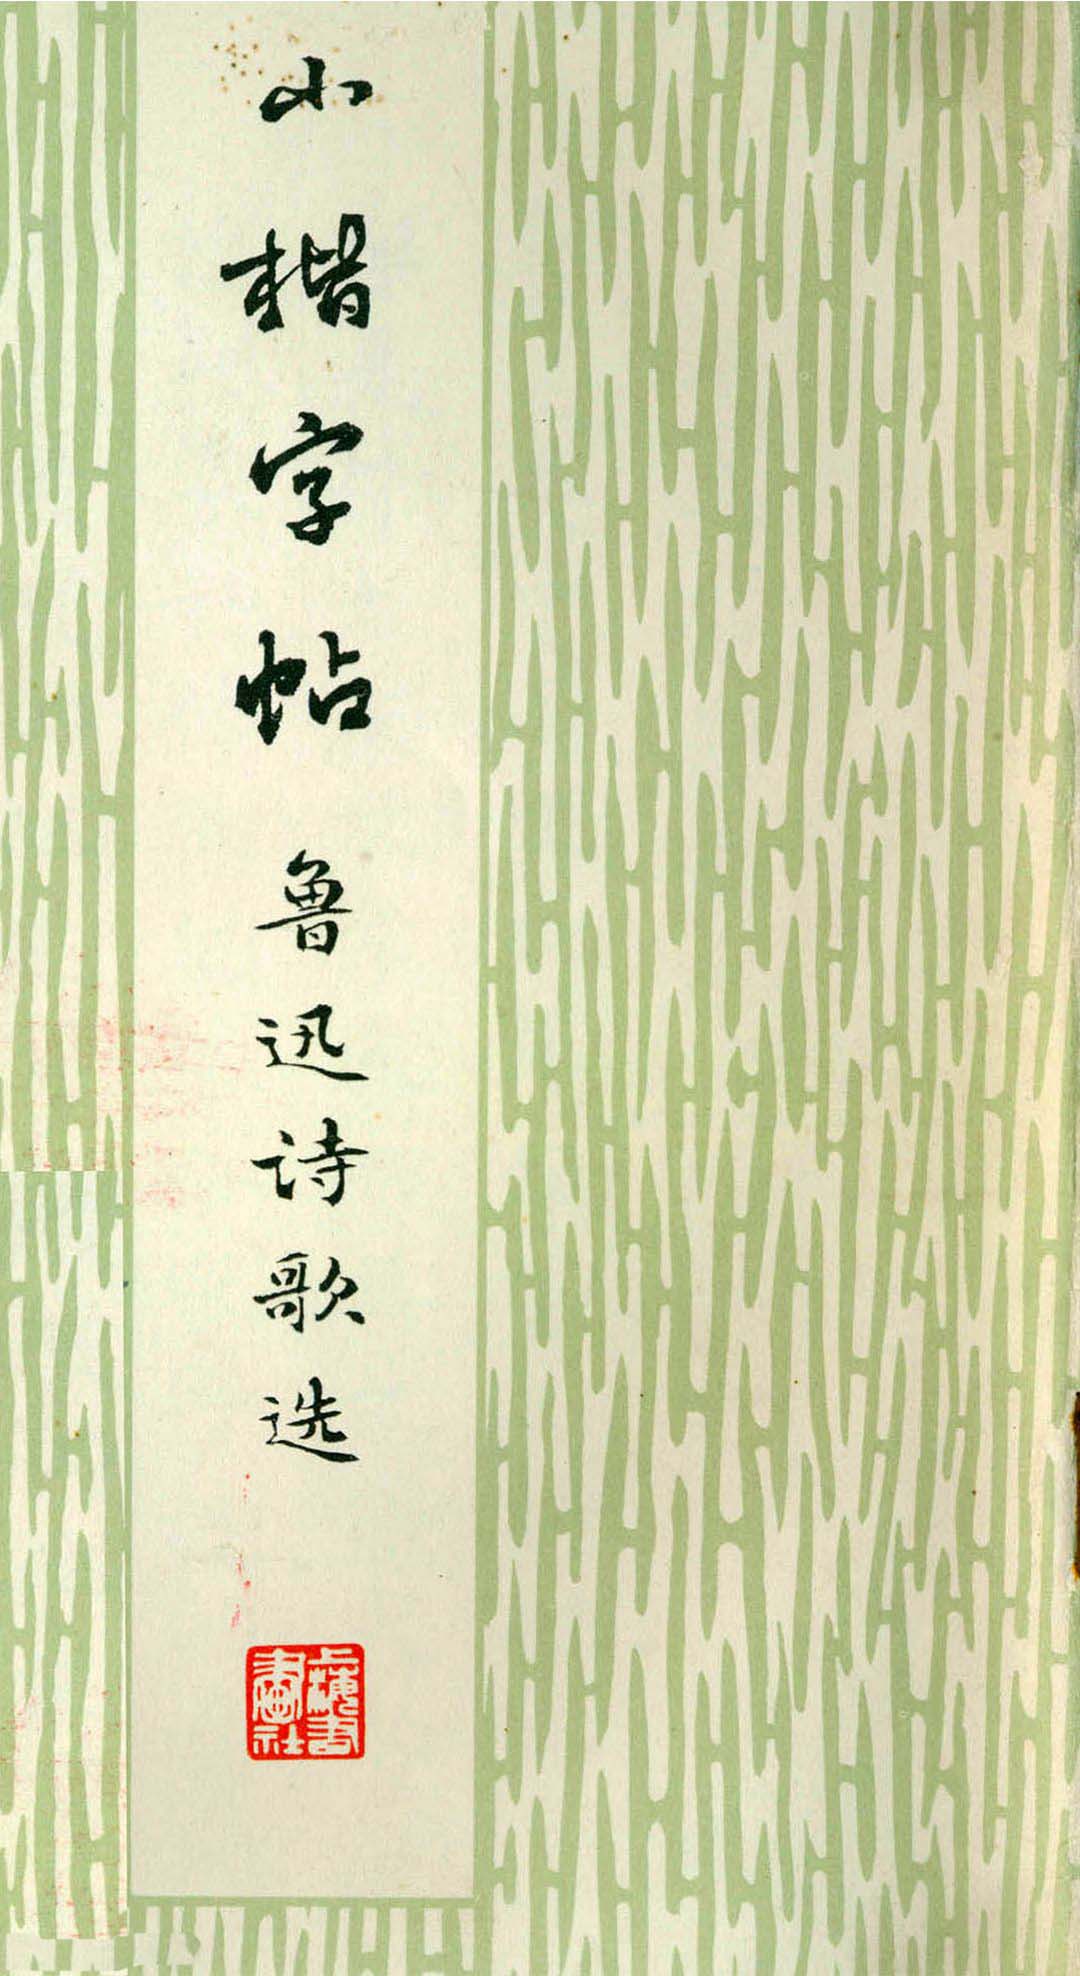 小楷字帖 鲁迅诗歌选
上海书
画社